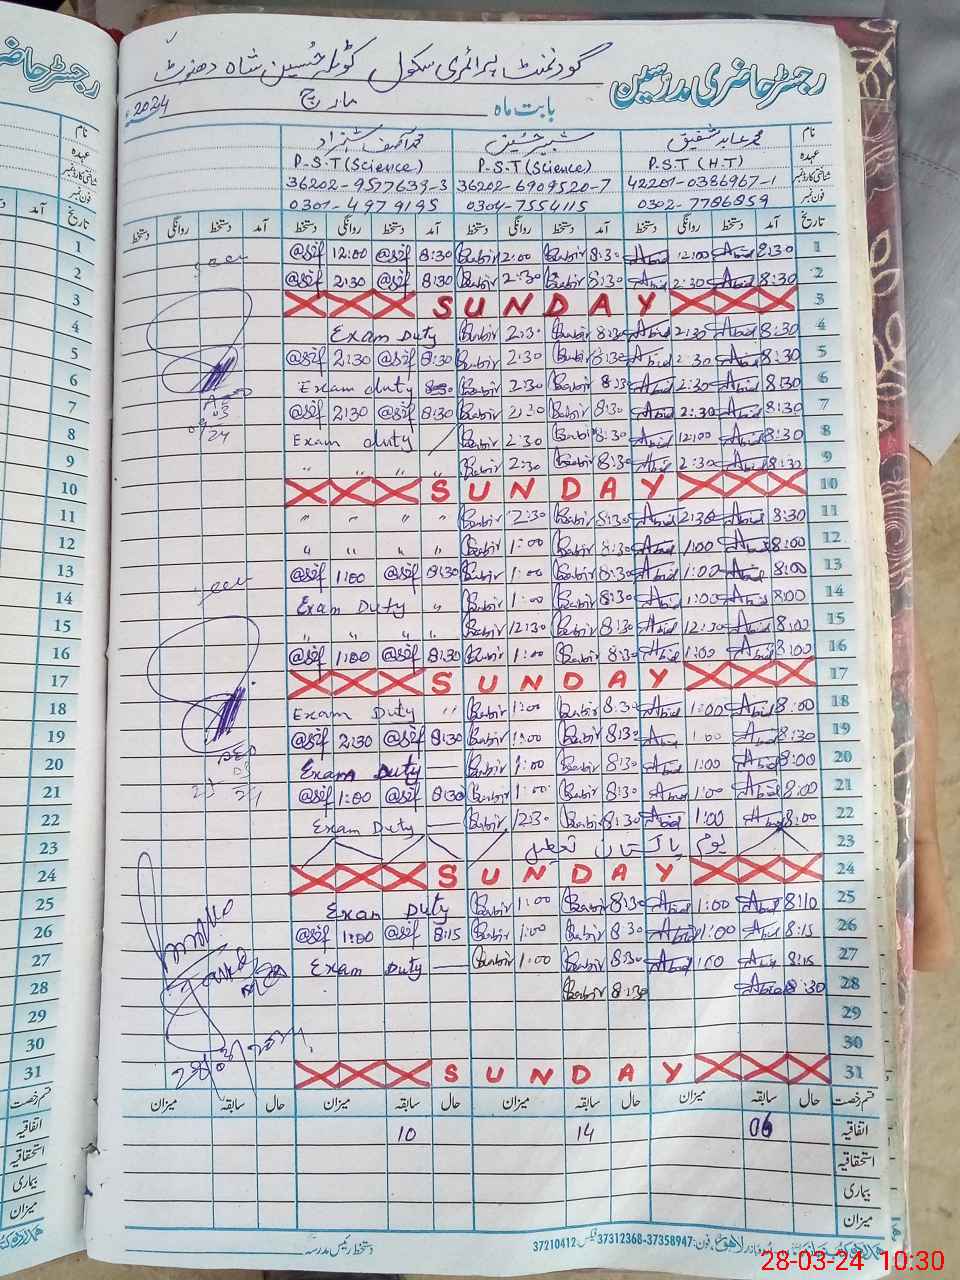 رجسٹر حاضری مدرسین
گورنمنٹ پرائمری سکول کوٹلہ حُسین شاہ دھنوٹ
بابت ماہ مارچ 2024ء
نام محمد عابد شفیق شبیر حسین محمد آصف شہزاد
عہدہ P.S.T (H.T) P.S.T (Science) P.S.T (Science)
شناختی کارڈ نمبر 42201-0386967-1 36202-6909520-7 36202-9577639-3
فون نمبر 0302-7786859 0304-7554115 0301-4979195
تاریخ آمد دستخط روانگی دستخط آمد دستخط روانگی دستخط آمد دستخط روانگی دستخط آمد دستخط روانگی دستخط
@sif 12:00 @sif 8:30 Babir 2:00 Babir 8:30 Abid 12:00 Abid 8:30 1
@sif 2:30 @sif 8:30 Babir 2:30 Babir 8:30 Abid 2:30 Abid 8:30 2
SUNDAY 3
Exam Duty Babir 2:30 Babir 8:30 Abid 2:30 Abid 8:30 4
@sif 2:30 @sif 8:30 Babir 2:30 Babir 8:30 Abid 2:30 Abid 8:30 5
Exam duty Babir 2:30 Babir 8:30 Abid 2:30 Abid 8:30 6
@sif 2:30 @sif 8:30 Babir 2:30 Babir 8:30 Abid 2:30 Abid 8:30 7
Exam duty Babir 2:30 Babir 8:30 Abid 12:00 Abid 8:30 8
" " " " Babir 2:30 Babir 8:30 Abid 2:30 Abid 8:30 9
SUNDAY 10
" " " " Babir 2:30 Babir 8:30 Abid 2:30 Abid 8:30 11
" " " " Babir 1:00 Babir 8:30 Abid 1:00 Abid 8:00 12
@sif 1:00 @sif 8:30 Babir 1:00 Babir 8:30 Abid 1:00 Abid 8:00 13
Exam Duty " Babir 1:00 Babir 8:30 Abid 1:00 Abid 8:00 14
" " " " Babir 12:30 Babir 8:30 Abid 12:30 Abid 8:00 15
@sif 1:00 @sif 8:30 Babir 1:00 Babir 8:30 Abid 1:00 Abid 8:00 16
SUNDAY 17
Exam Duty " Babir 1:00 Babir 8:30 Abid 1:00 Abid 8:00 18
@sif 2:30 @sif 8:30 Babir 1:00 Babir 8:30 Abid 1:00 Abid 8:30 19
Exam Duty — Babir 1:00 Babir 8:30 Abid 1:00 Abid 8:00 20
@sif 1:00 @sif 8:30 Babir 1:00 Babir 8:30 Abid 1:00 Abid 8:00 21
Exam Duty — Babir 12:30 Babir 8:30 Abid 1:00 Abid 8:00 22
یوم پاکستان تعطیل 23
SUNDAY 24
Exam Duty Babir 1:00 Babir 8:30 Abid 1:00 Abid 8:10 25
@sif 1:00 @sif 8:15 Babir 1:00 Babir 8:30 Abid 1:00 Abid 8:15 26
Exam Duty — Babir 1:00 Babir 8:30 Abid 1:00 Abid 8:15 27
Babir 8:30 Abid 8:30 28
29
30
SUNDAY 31
قسم رخصت حال سابقہ میزان حال سابقہ میزان حال سابقہ میزان حال سابقہ میزان
اتفاقیہ 06 14 10
استحقاقیہ
بیماری
میزان
دستخط رئیس مدرسہ
فون: 37358947-37312368 فیکس 37210412
28-03-24 10:30